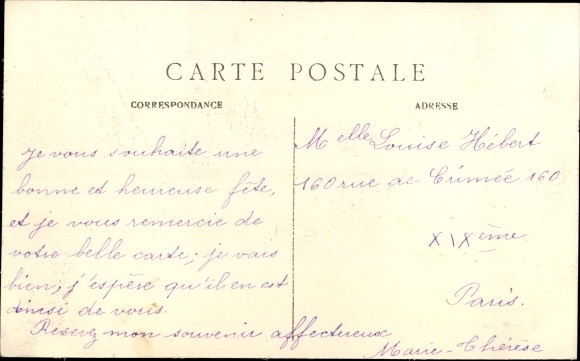 CARTE POSTALE
CORRESPONDANCE
ADRESSE
Je vous souhaite une
bonne et heureuse fête,
et je vous remercie de
votre belle carte; je vais
bien; j'espère qu'il en est
ainsi de vous.
Recevez mon souvenir affectueux
Marie-Thérèse
Melle Louise Hébert
160 rue de Crimée 160
XIXème
Paris.